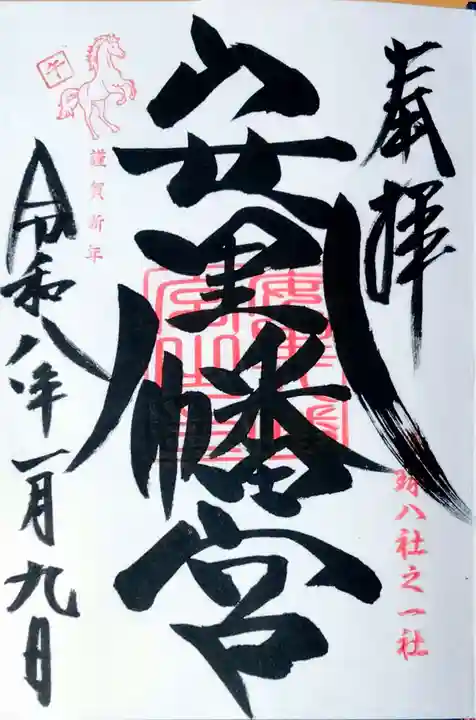 奉拝
琉八社之一社
安里八幡宮
午
謹賀新年
令和八年一月九日